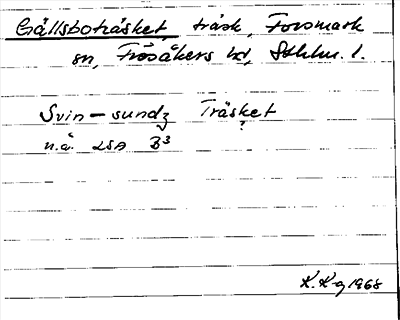 Gällsboträsket träsk, Forsmark
sn, Frösåkers hd, Sthlm. l.
Svin-sundz Träsket
n.ä. LSA B3
K.K-g 1968